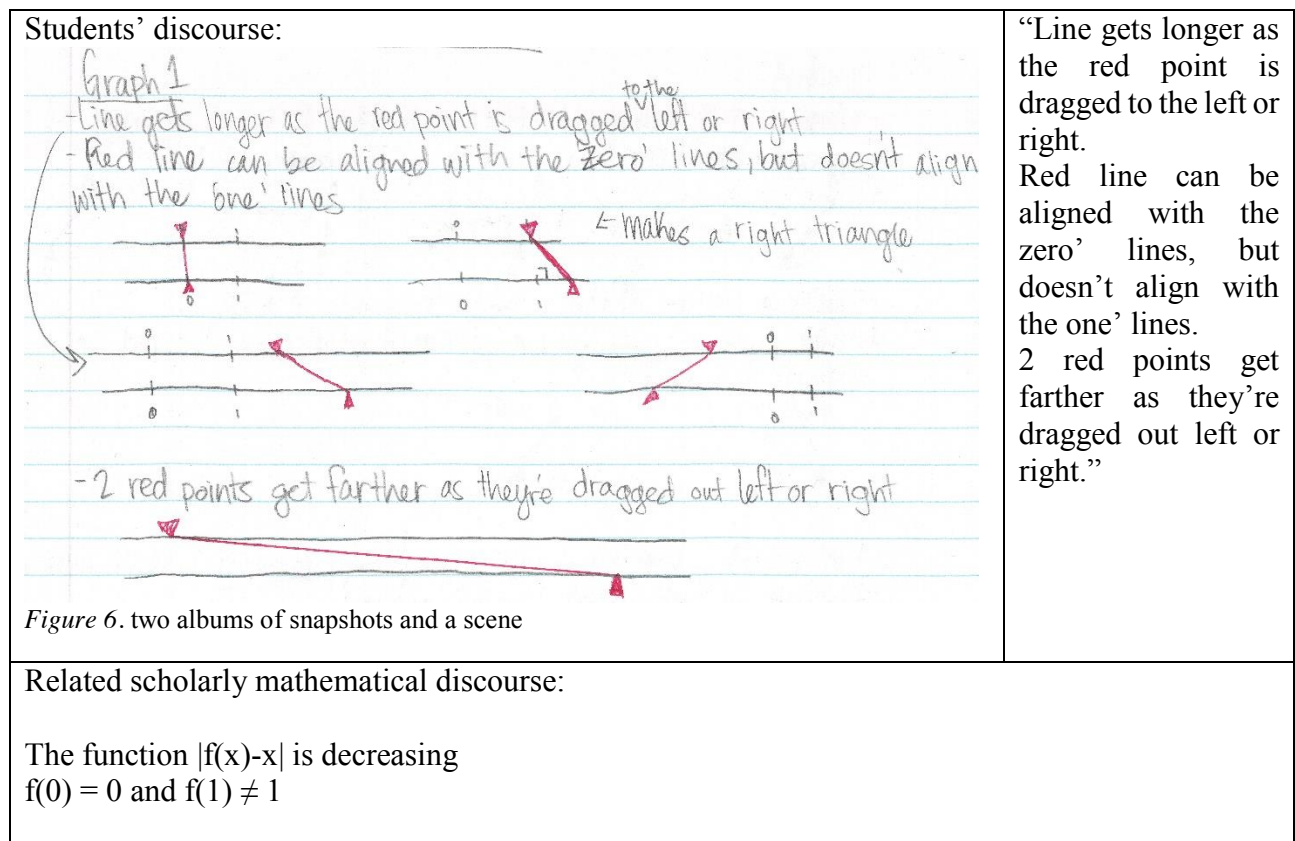 Students’ discourse:
Graph 1
-Line gets longer as the red point is dragged to the left or right
- Red line can be aligned with the 'zero' lines, but doesn't align
with the 'one' lines
0 1
0 1
← makes a right triangle
0
0 1
0 1
0 1
0 1
0 1
- 2 red points get farther as they're dragged out left or right
Figure 6. two albums of snapshots and a scene
“Line gets longer as
the red point is
dragged to the left or
right.
Red line can be
aligned with the
zero’ lines, but
doesn’t align with
the one’ lines.
2 red points get
farther as they’re
dragged out left or
right.”
Related scholarly mathematical discourse:
The function |f(x)-x| is decreasing
f(0) = 0 and f(1) ≠ 1